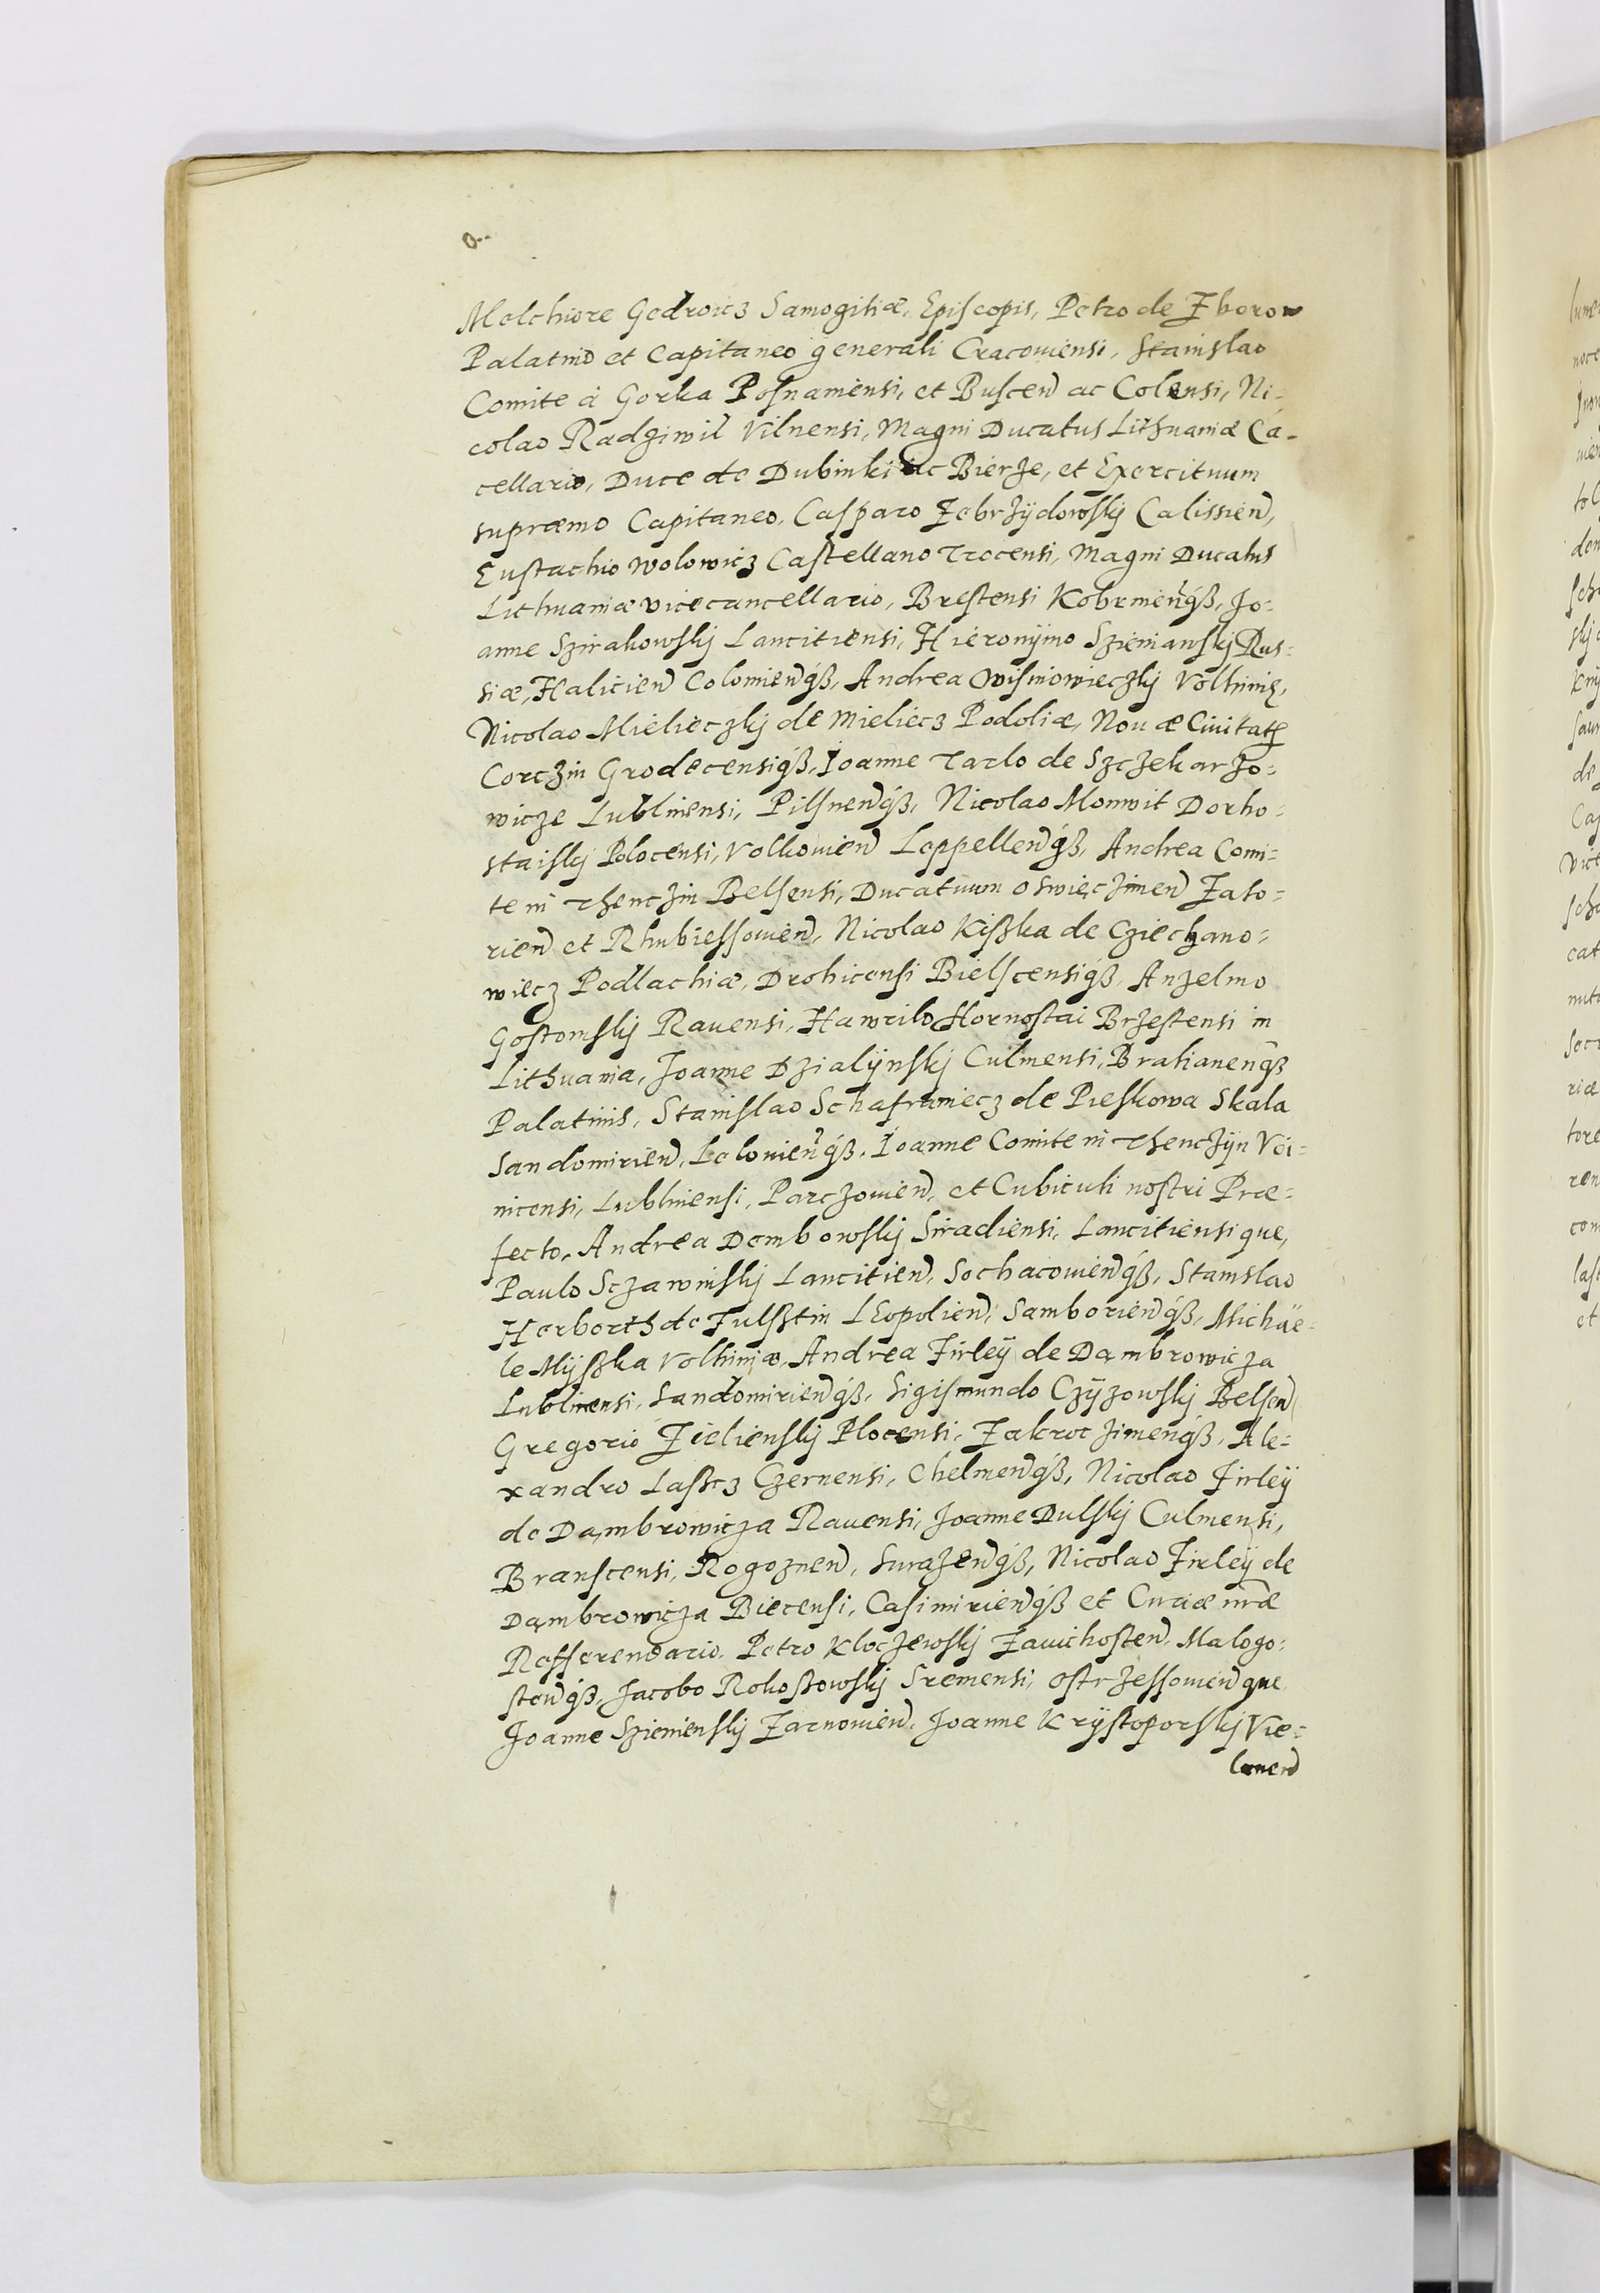 Melchiore Gedroicz Samogitiæ, Episcopis, Petro de Zborow
Palatino et Capitaneo generali Cracouiensi, Stanislao
Comite à Gorka Posnaniensi, et Buscen̄ ac Colensi, Ni-
colao Radziwil Vilnensi, Magni Ducatus Lithuaniæ Ca-
cellario, Duce de Dubinki ac Bierze, et Exercituum
supræmo Capitaneo, Casparo Zebrzÿdowskÿ Calissien̄,
Eustachio Wolowicz Castellano Trocensi, Magni Ducatus
Lithuaniæ vicecancellario, Brestensi Kobrinen̄qß, Jo-
anne Szirakowskÿ Lancitiensi, Hieronÿmo Szieniawskÿ Rus-
siæ, Halicien̄ Colomien̄qß, Andrea Wisniowieczkÿ Volhiniæ,
Nicolao Mielieczkÿ de Mieliecz Podoliæ, Nouæ Ciuitatꝭ
Corczin Grodecensiqß, Joanne Tarlo de Szczekarzo-
wicze Lublinensi, Pilsnen̄qß, Nicolao Monwit Dorho-
staiskÿ Polocensi, Volkouien̄ Leppellen̄qß, Andrea Comi-
te in Thenczin Belsensi, Ducatuum Oswięczimen̄ Zato-
rien̄ et Rhubiessouien̄, Nicolao Kißka de Cziechano-
wiecz Podlachiæ, Drohicensi Bielscensiqß, Anzelmo
Gostomskÿ Rauensi, Hawrilo Hornostai Brzestensi in
Lithuania, Joanne Dzialÿnskÿ Culmensi, Bratianen̄qß
Palatinis, Stanislao Schafraniecz de Pieskowa Skala
Sandomirien̄, Lelouien̄qß, Joanne Comite in Thenczÿn Voi-
nicensi, Lublinensi, Parczouien̄, et Cubiculi nostri Præ-
fecto, Andrea Dembowskÿ Siradiensi, Lancitiensique,
Paulo Sczawinskÿ Lancitien̄, Sochacouien̄qß, Stanislao
Herborth de Fulßtin Leopolien̄, Samborien̄qß, Michaë-
le Mÿßka Volhiniæ, Andrea Firleÿ de Dambrowicza
Lublinensi, Sandomirien̄qß, Sigismundo Czÿzowskÿ Belsen̄
Gregorio Zielienskÿ Plocensi, Zakroczimen̄qß, Ale-
xandro Laßcz Czernensi, Chelmen̄qß, Nicolao Firleÿ
de Dąmbrowicza Rauensi, Joanne Dulskÿ Culmensi,
Branscensi, Rogoznen̄, Surazen̄qß, Nicolao Firleÿ de
Dąmbrowicza Biecensi, Casimirien̄qß et Curiæ nr̄æ
Refferendario, Petro Kloczewskÿ Zauichosten̄, Malogo-
sten̄qß, Jacobo Rokoßowskÿ Sremensi, Ostrzessouien̄que
Joanne Szienienskÿ Zarnouien̄, Joanne Krÿstoporskÿ Vie-
lunen̄